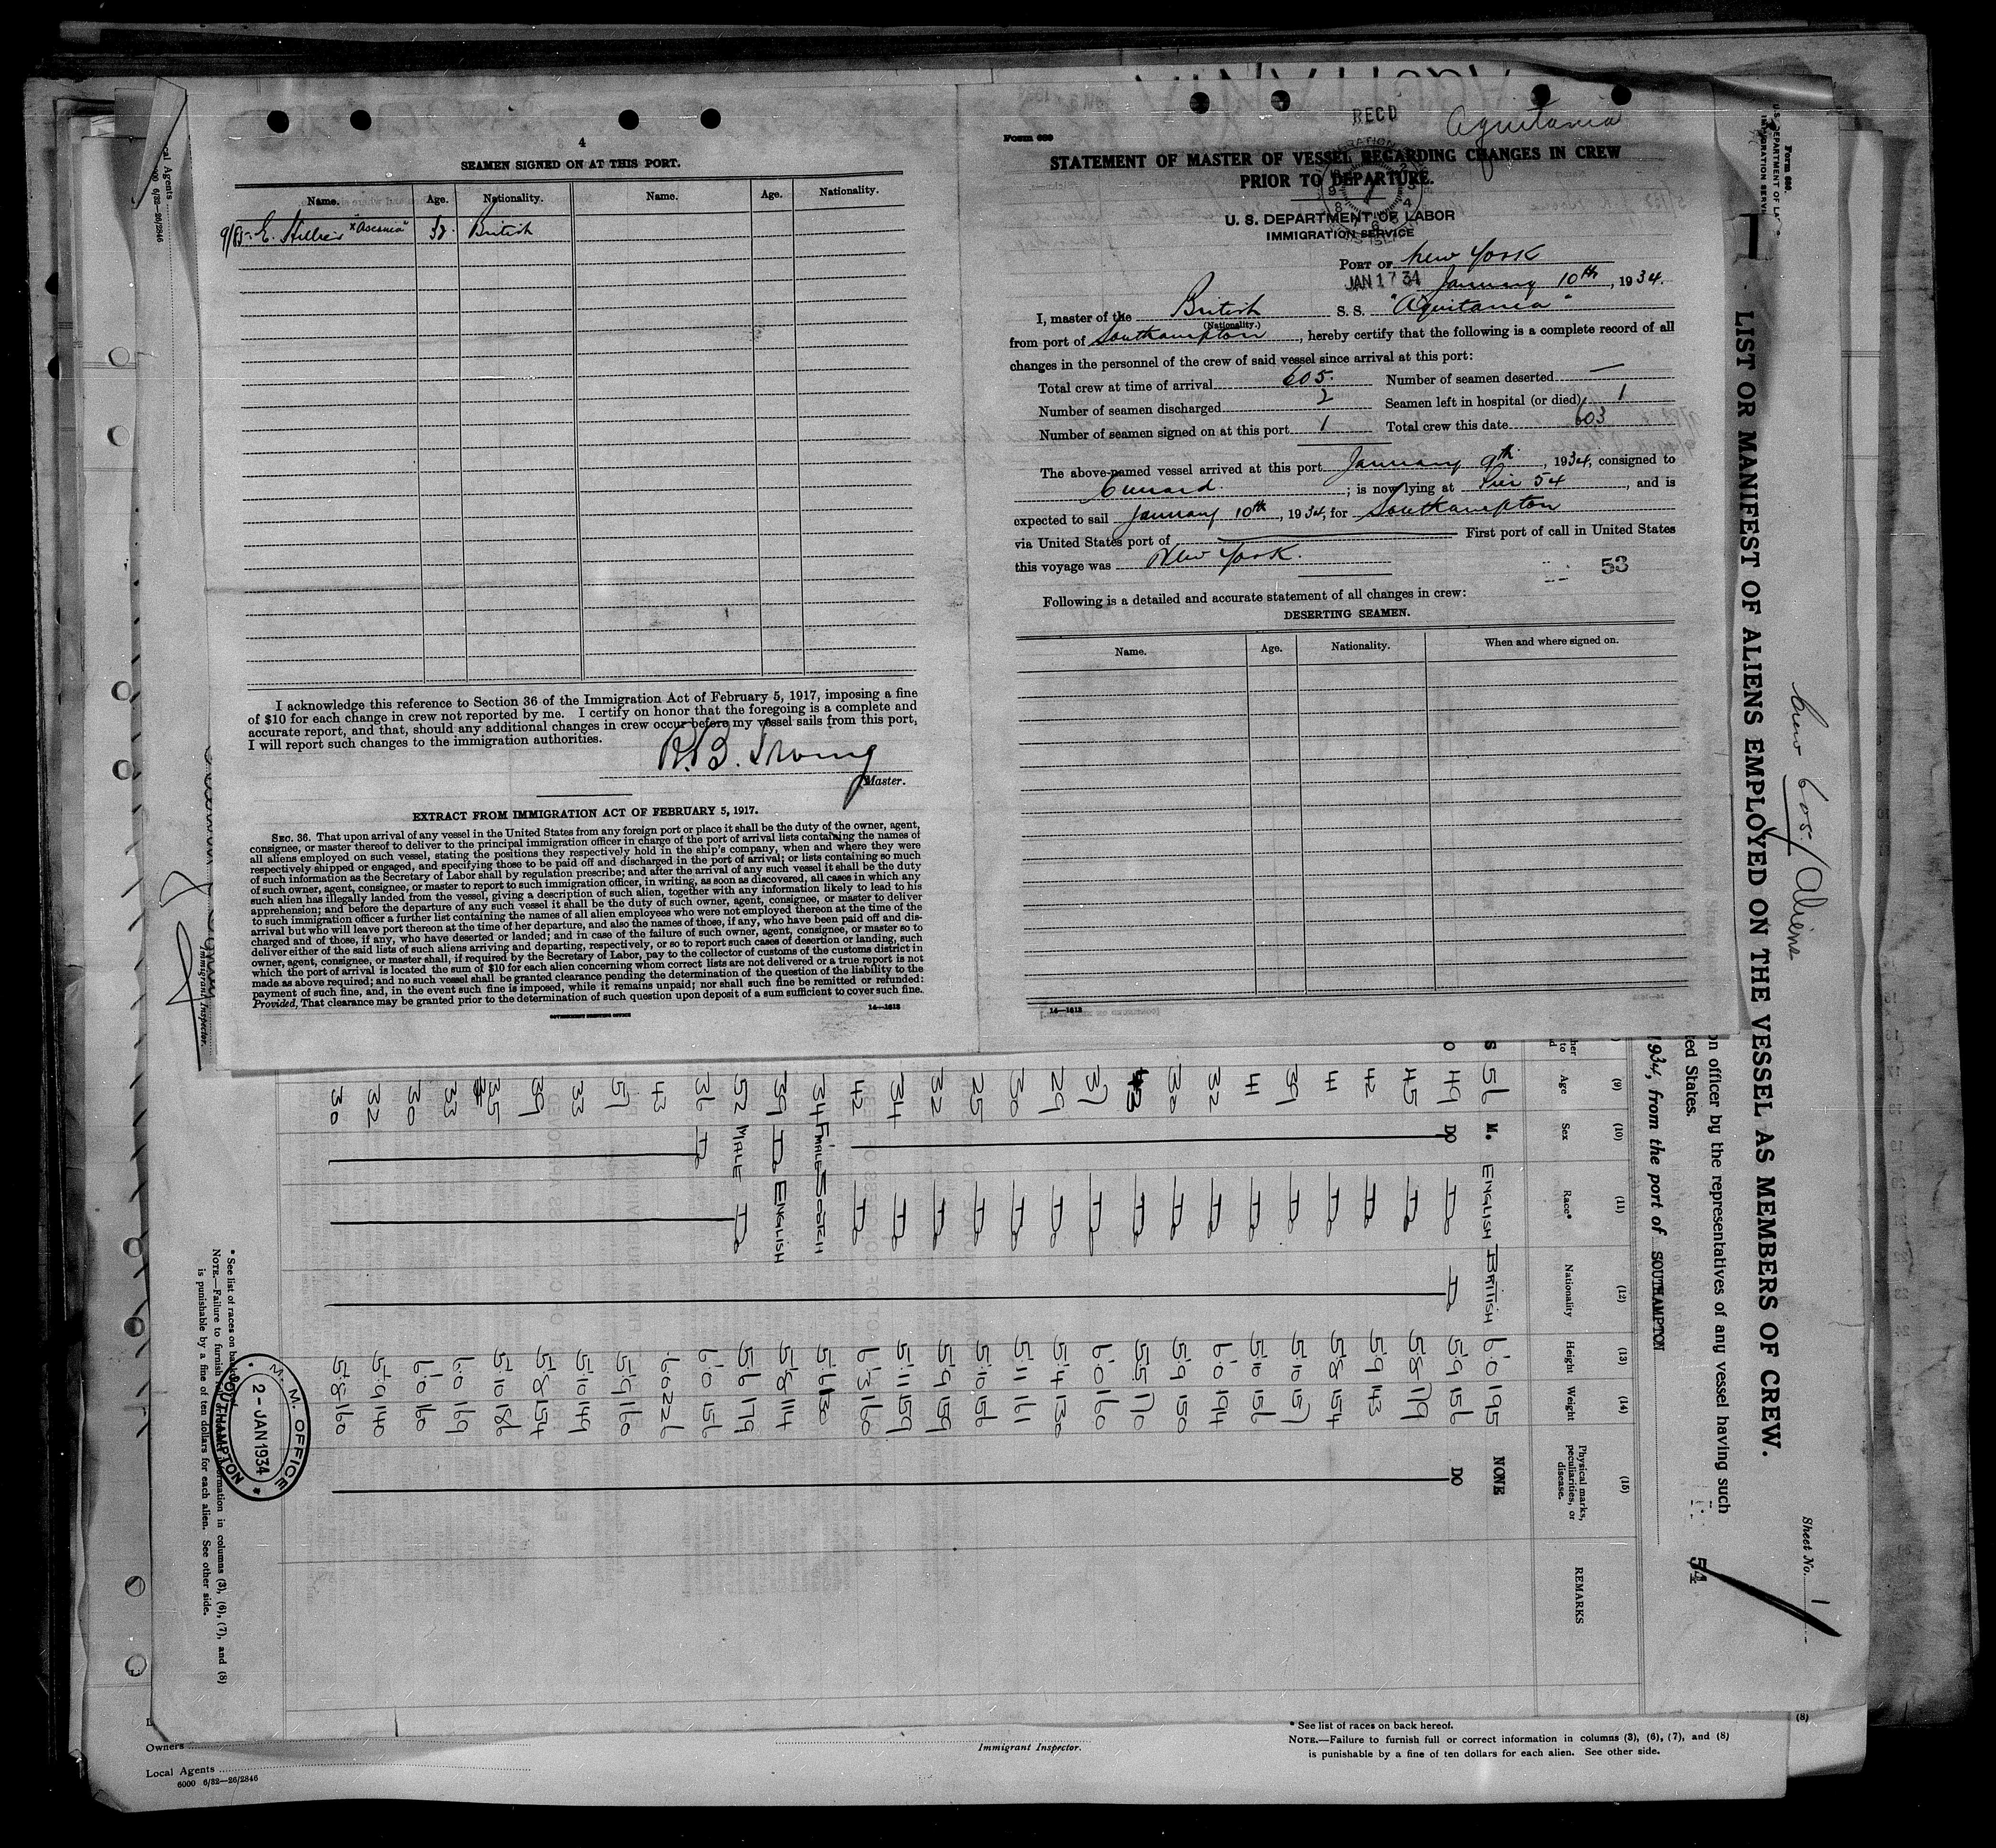 4
SEAMEN SIGNED ON AT THIS PORT.
Name. Age. Nationality. Name. Age. Nationality.
E. Hillier "Ascania" 32. British
I acknowledge this reference to Section 36 of the Immigration Act of February 5, 1917, imposing a fine
of $10 for each change in crew not reported by me. I certify on honor that the foregoing is a complete and
accurate report, and that, should any additional changes in crew occur before my vessel sails from this port,
I will report such changes to the immigration authorities.
R.B. Irving
Master.
EXTRACT FROM IMMIGRATION ACT OF FEBRUARY 5, 1917.
SEC. 36. That upon arrival of any vessel in the United States from any foreign port or place it shall be the duty of the owner, agent,
consignee, or master thereof to deliver to the principal immigration officer in charge of the port of arrival lists containing the names of
all aliens employed on such vessel, stating the positions they respectively hold in the ship's company, when and where they were
respectively shipped or engaged, and specifying those to be paid off and discharged in the port of arrival; or lists containing so much
of such information as the Secretary of Labor shall by regulation prescribe; and after the arrival of any such vessel it shall be the duty
of such owner, agent, consignee, or master to report to such immigration officer, in writing, as soon as discovered, all cases in which any
such alien has illegally landed from the vessel, giving a description of such alien, together with any information likely to lead to his
apprehension; and before the departure of any such vessel it shall be the duty of such owner, agent, consignee, or master to deliver
to such immigration officer a further list containing the names of all alien employees who were not employed thereon at the time of the
arrival but who will leave port thereon at the time of her departure, and also the names of those, if any, who have been paid off and dis-
charged and of those, if any, who have deserted or landed; and in case of the failure of such owner, agent, consignee, or master so to
deliver either of the said lists of such aliens arriving and departing, respectively, or so to report such cases of desertion or landing, such
owner, agent, consignee, or master shall, if required by the Secretary of Labor, pay to the collector of customs of the customs district in
which the port of arrival is located the sum of $10 for each alien concerning whom correct lists are not delivered or a true report is not
made as above required; and no such vessel shall be granted clearance pending the determination of the question of the liability to the
payment of such fine, and, in the event such fine is imposed, while it remains unpaid; nor shall such fine be remitted or refunded:
Provided, That clearance may be granted prior to the determination of such question upon deposit of a sum sufficient to cover such fine.
14—1612
GOVERNMENT PRINTING OFFICE
RECD
Aquitania
Form 689
STATEMENT OF MASTER OF VESSEL REGARDING CHANGES IN CREW
PRIOR TO DEPARTURE.
U. S. DEPARTMENT OF LABOR
IMMIGRATION SERVICE
PORT OF New York
JAN 17 34
January 10th, 1934.
I, master of the British S. S. "Aquitania"
(Nationality.)
from port of Southampton, hereby certify that the following is a complete record of all
changes in the personnel of the crew of said vessel since arrival at this port:
Total crew at time of arrival 605. Number of seamen deserted —
Number of seamen discharged 2 Seamen left in hospital (or died) 1
Number of seamen signed on at this port 1 Total crew this date 603
The above-named vessel arrived at this port January 9th, 1934, consigned to
Cunard. ; is now lying at Pier 54, and is
expected to sail January 10th, 1934, for Southampton
via United States port of — First port of call in United States
this voyage was New York.
53
Following is a detailed and accurate statement of all changes in crew:
DESERTING SEAMEN.
Name. Age. Nationality. When and where signed on.
14—1612
Form 680.
U.S. DEPARTMENT OF LA
IMMIGRATION SERV
Sheet No. 1
Crew 605. / Aliens
LIST OR MANIFEST OF ALIENS EMPLOYED ON THE VESSEL AS MEMBERS OF CREW.
on officer by the representatives of any vessel having such
ed States.
54
1934, from the port of SOUTHAMPTON
(9) (10) (11) (12) (13) (14) (15)
Age Sex Race* Nationality Height Weight Physical marks, peculiarities, or disease. REMARKS
S 56 M. ENGLISH BRITISH 6.0 195 NONE
O 49 DO D D 5.9 156 DO
45 D 5.8 179
42 D 5.9 143
41 D 5.8 154
39 D 5.10 157
41 D 5.10 156
32 D 6.0 194
30 D 5.9 150
43 D 5.5 170
37 D 6.0 160
29 D 5.4 130
30 D 5.11 161
25 D 5.10 156
32 D 5.9 159
34 D 5.11 159
42 D 6.3 160
34 FMALE SCOTCH 5.6 130
39 D ENGLISH 5.8 114
52 MALE D 5.6 179
36 D 6.0 156
43 6.0 226
57 5.9 160
33 5.10 149
39 5.8 154
35 5.10 186
33 6.0 169
30 6.0 160
32 5.9 140
30 5.8 160
* See list of races on back hereof.
NOTE.—Failure to furnish full or correct information in columns (3), (6), (7), and (8)
is punishable by a fine of ten dollars for each alien. See other side.
M. M. OFFICE
2 - JAN 1934
SOUTHAMPTON
Immigrant Inspector.
cal Agents
000 6/32—26/2846
(8)
* See list of races on back hereof.
NOTE.—Failure to furnish full or correct information in columns (3), (6), (7), and (8)
is punishable by a fine of ten dollars for each alien. See other side.
Owners
Immigrant Inspector.
Local Agents
6000 6/32—26/2846